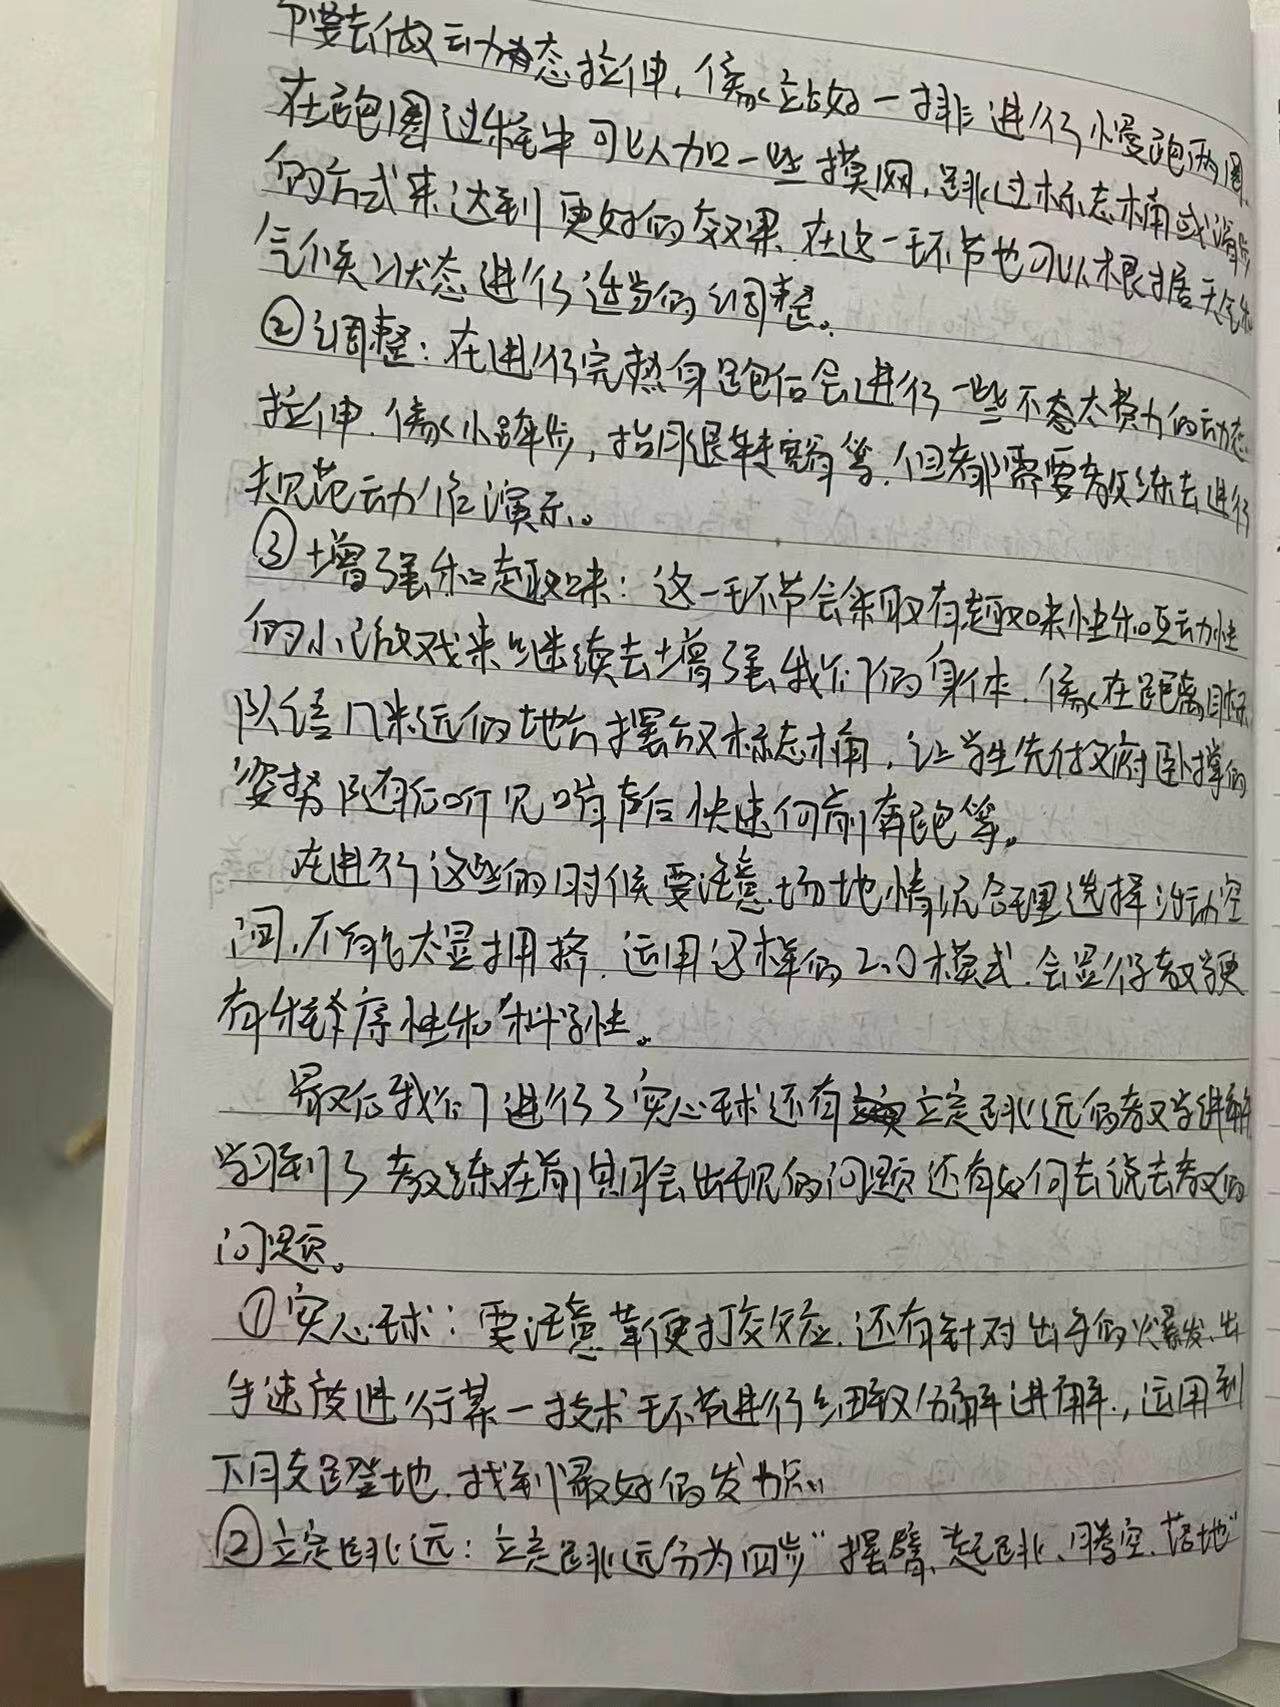 不要去做动态拉伸，像站好一排进行慢跑两圈，
在跑圈过程中可以加一些摸网，跳过标志桶或滑步
的方式来达到更好的效果，在这一环节也可以根据天气和
气候状态进行适当的调整。
②调整：在进行完热身跑后会进行一些不太费力的动态
拉伸，像小跳步，抬腿转髋等，但都需要教练去进行
规范动作演示。
③增强和趣味：这一环节会采取有趣味性和互动性
的小游戏来继续去增强我们的身体，像在距离目标
队伍几米远的地方摆放标志桶，让学生先付俯卧撑的
姿势 随后听见哨声后快速向前奔跑等。
在进行这些的时候要注意场地情况合理选择活动空
间，不能太显拥挤，运用这样的2.0模式，会显得教学更
有程序性和科学性。
最后我们进行了实心球还有立定跳远的教学讲解
学习到了教练在前期会出现的问题还有如何去说去教的
问题。
①实心球：要注意鞭打效应，还有针对出手的爆发、出
手速度进行某一技术环节进行细致分解讲解，运用到
下肢蹬地，找到最好的发力点
②立定跳远：立定跳远分为四步“摆臂、起跳、腾空、落地”